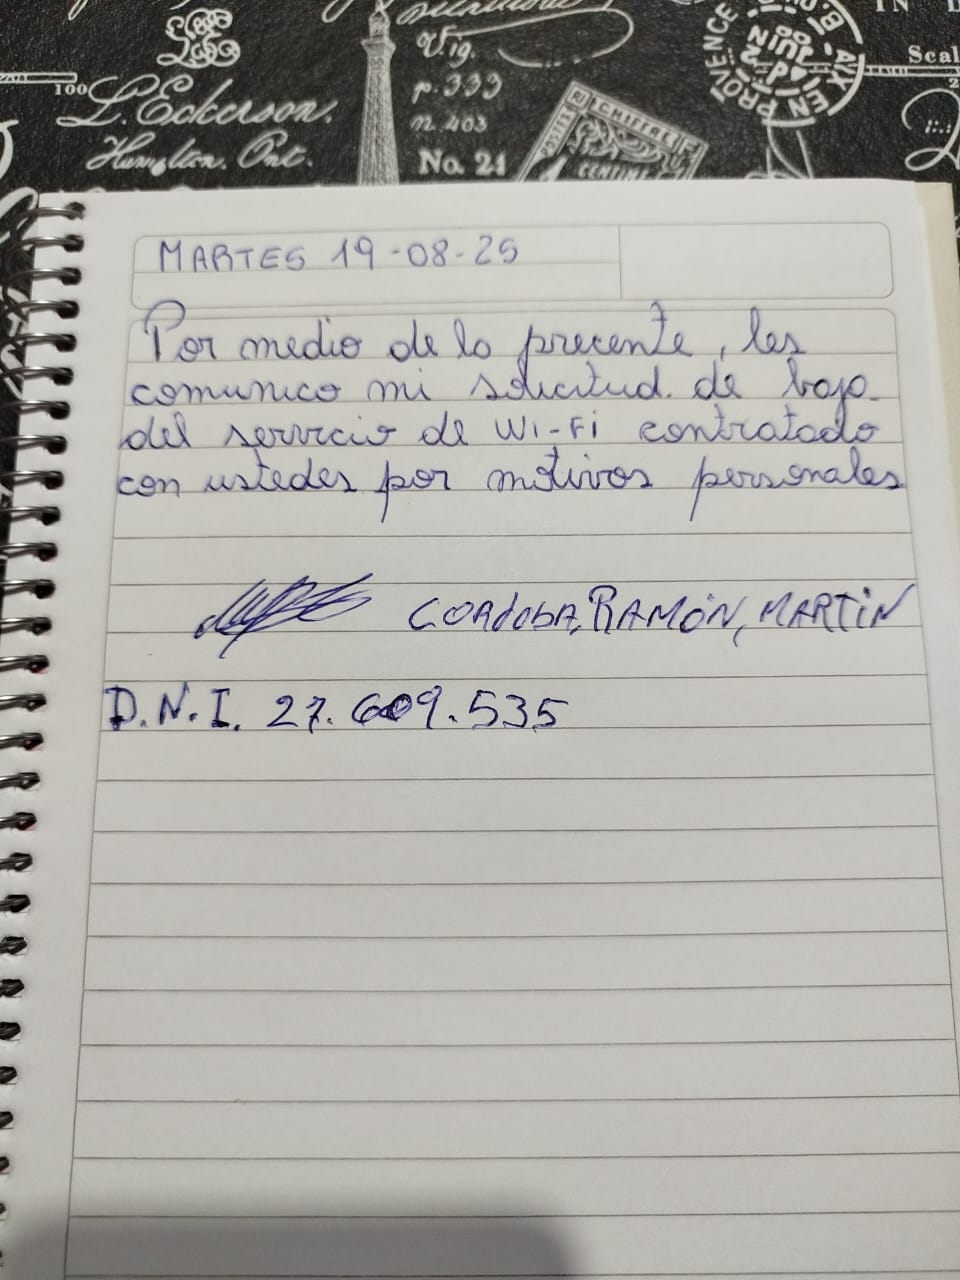 Vig.
p. 333
n. 403
No. 21
L. Eckerson.
Hamilton. Ont.
100
CHIFFRE
CENTIME
AIX EN PROVENCE
JUIN
IN
Scal
MARTES 19-08-25
Por medio de la precente, les
comunico mi solicitud. de baja
del servicio de Wi-Fi contratado
con ustedes por motivos personales
CORdobA, RAMÓN, MARTiN
D.N.I. 27.609.535